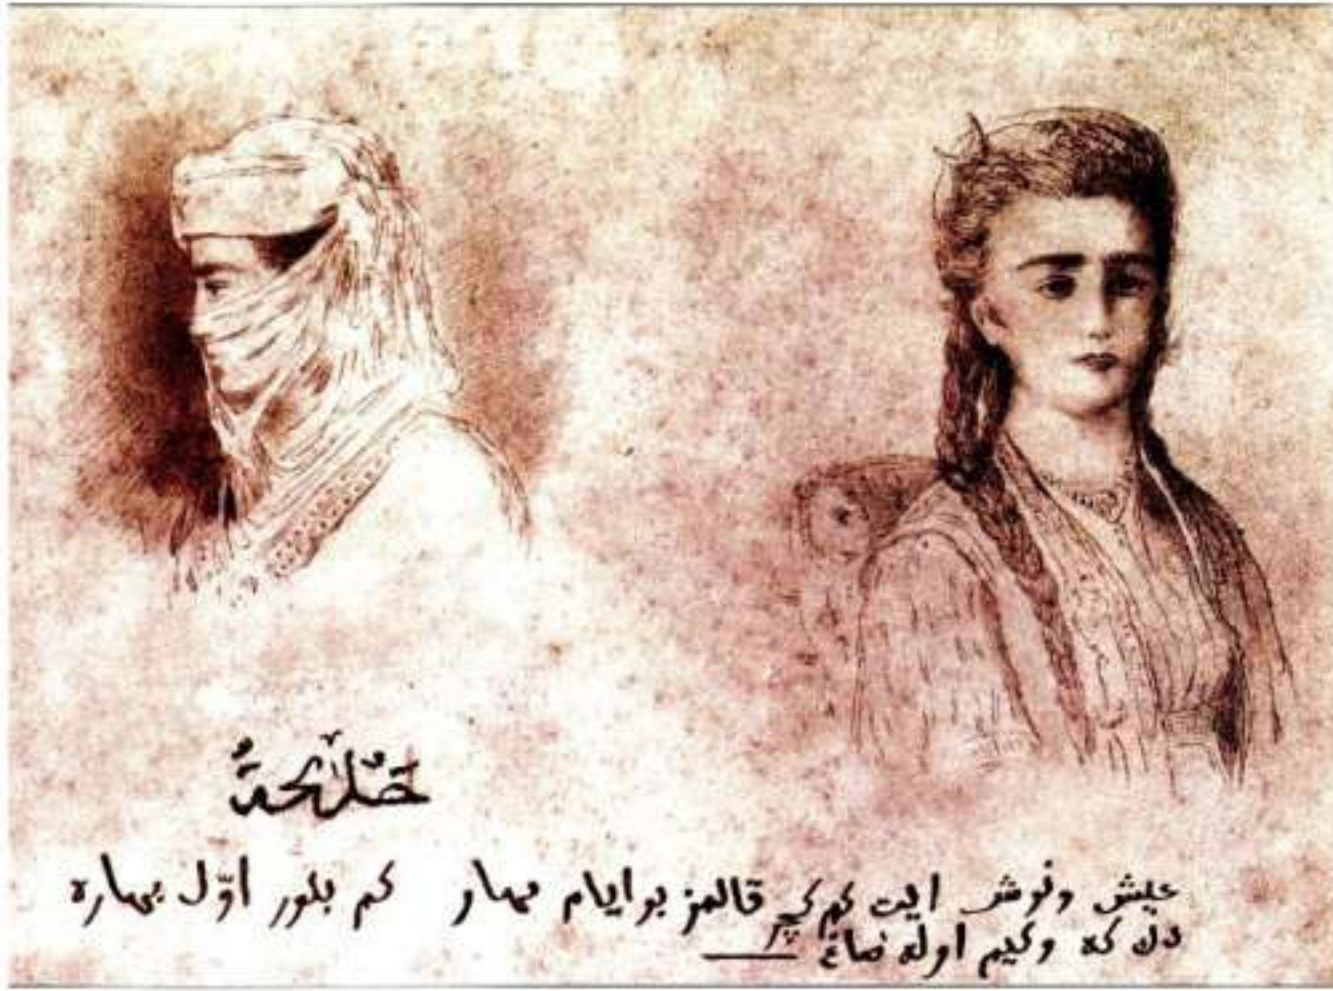 عيش ونوش ايت كم كچر قالمز بو ايام بهار كم بلور اوّل بهاره
دك كه وكيم اوله صاغ